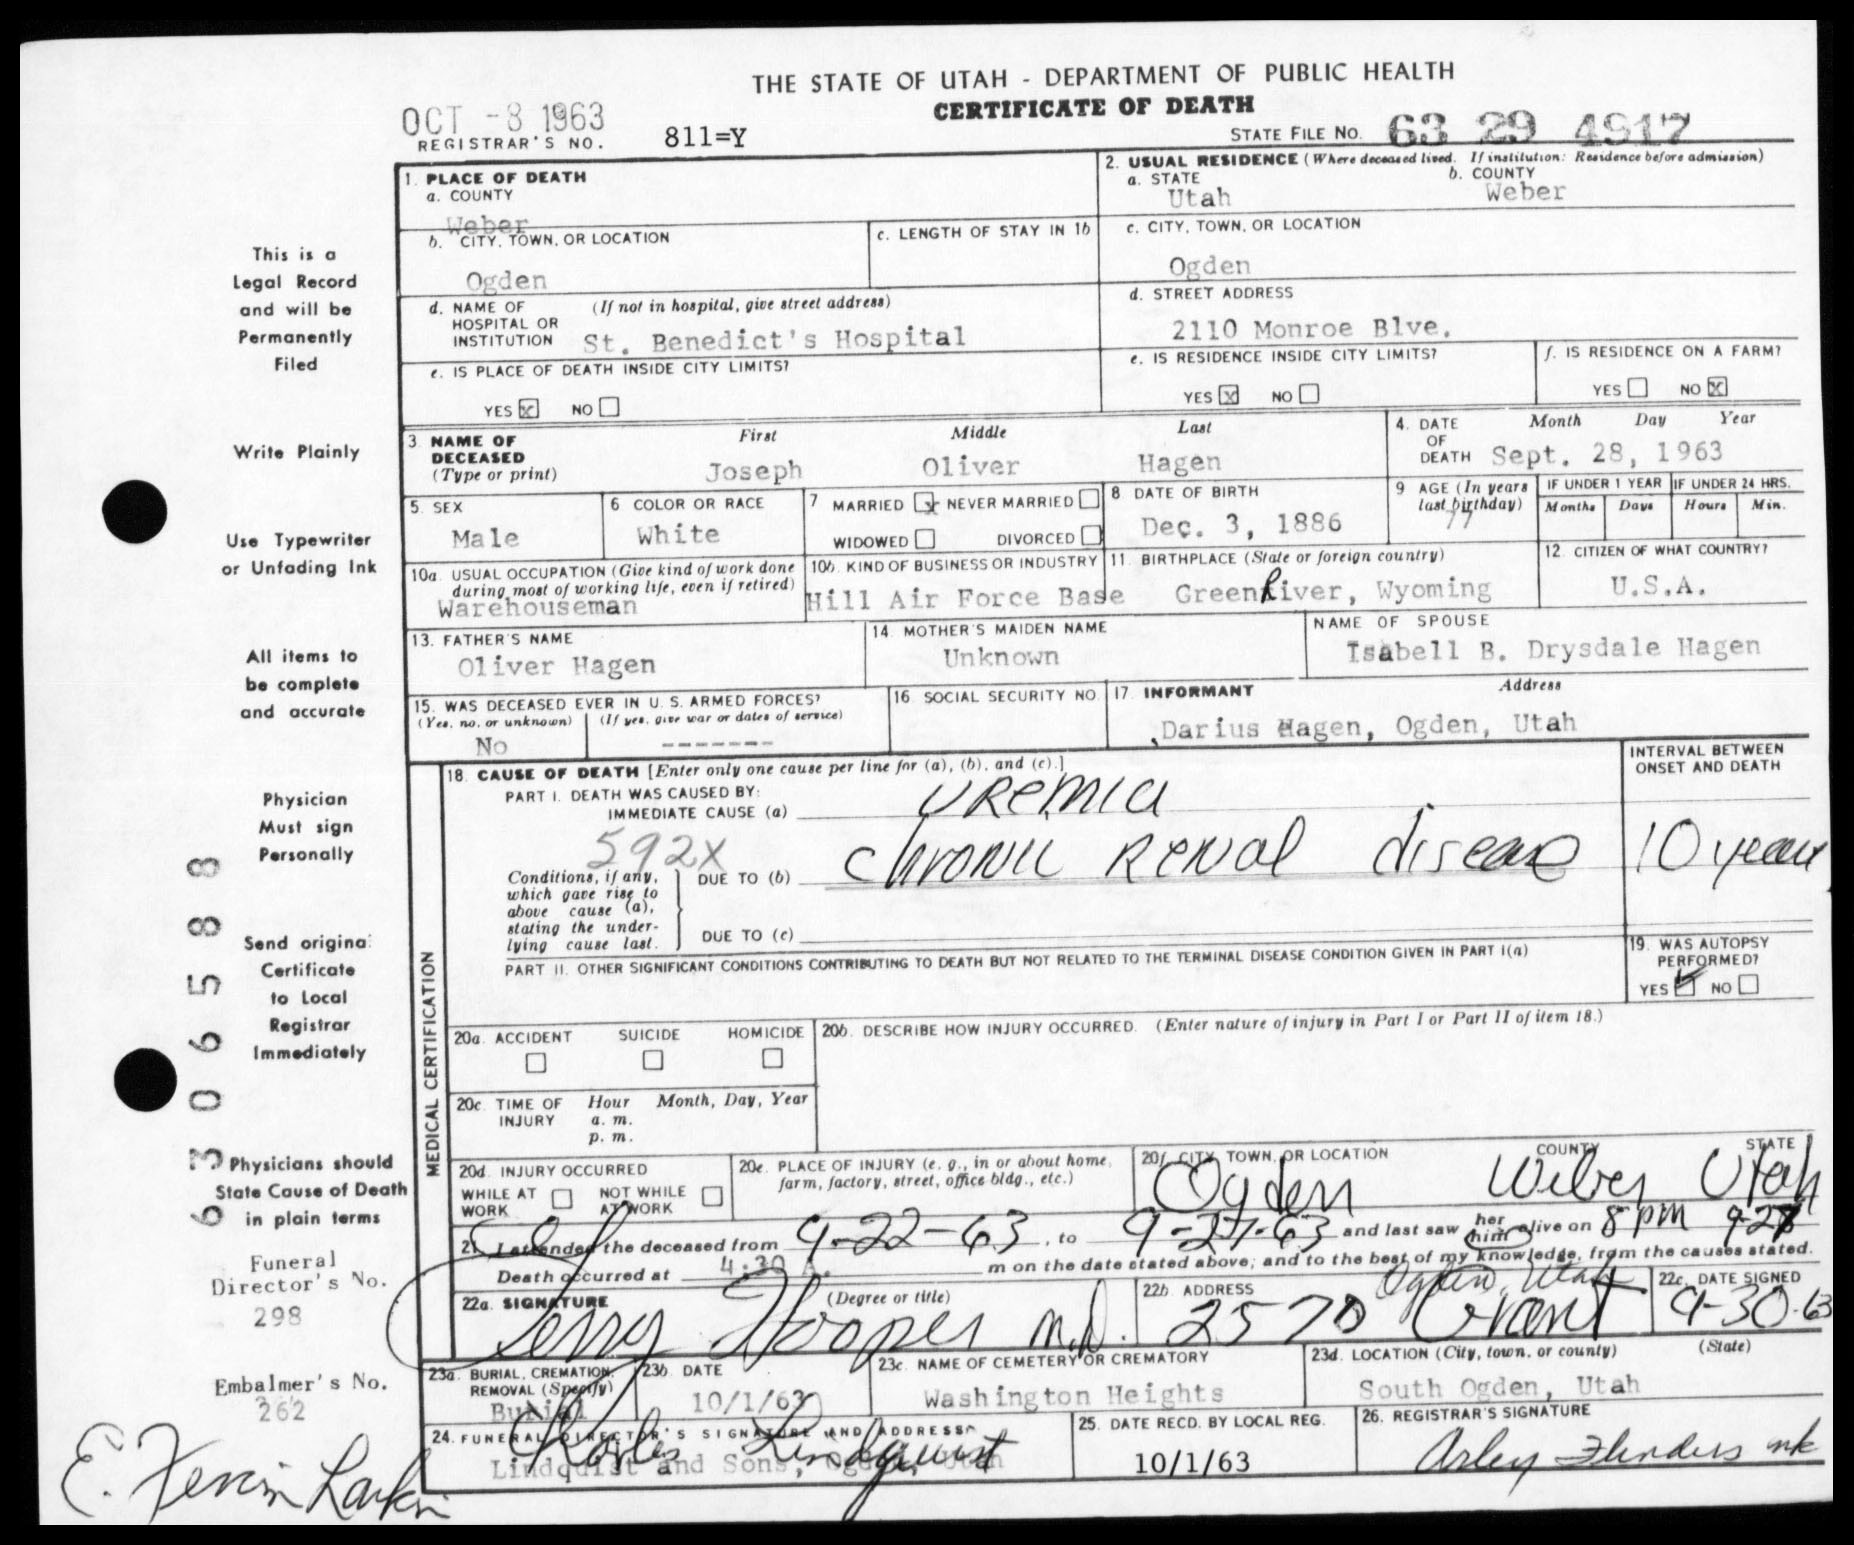 THE STATE OF UTAH - DEPARTMENT OF PUBLIC HEALTH
CERTIFICATE OF DEATH
OCT -8 1963
REGISTRAR'S NO. 811=Y
STATE FILE NO. 63 29 4917
1. PLACE OF DEATH
a. COUNTY
Weber
b. CITY, TOWN, OR LOCATION
Ogden
c. LENGTH OF STAY IN 1b
d. NAME OF HOSPITAL OR INSTITUTION (If not in hospital, give street address)
St. Benedict's Hospital
e. IS PLACE OF DEATH INSIDE CITY LIMITS?
YES x NO
2. USUAL RESIDENCE (Where deceased lived. If institution: Residence before admission)
a. STATE
Utah
b. COUNTY
Weber
c. CITY, TOWN, OR LOCATION
Ogden
d. STREET ADDRESS
2110 Monroe Blve.
e. IS RESIDENCE INSIDE CITY LIMITS?
YES x NO
f. IS RESIDENCE ON A FARM?
YES NO x
3. NAME OF DECEASED (Type or print)
First Middle Last
Joseph Oliver Hagen
4. DATE OF DEATH Month Day Year
Sept. 28, 1963
5. SEX
Male
6 COLOR OR RACE
White
7 MARRIED x NEVER MARRIED
WIDOWED DIVORCED
8 DATE OF BIRTH
Dec. 3, 1886
9 AGE (In years last birthday)
77
IF UNDER 1 YEAR
Months Days
IF UNDER 24 HRS.
Hours Min.
10a. USUAL OCCUPATION (Give kind of work done during most of working life, even if retired)
Warehouseman
10b. KIND OF BUSINESS OR INDUSTRY
Hill Air Force Base
11. BIRTHPLACE (State or foreign country)
GreenRiver, Wyoming
12. CITIZEN OF WHAT COUNTRY?
U.S.A.
13. FATHER'S NAME
Oliver Hagen
14. MOTHER'S MAIDEN NAME
Unknown
NAME OF SPOUSE
Isabell B. Drysdale Hagen
15. WAS DECEASED EVER IN U. S. ARMED FORCES?
(Yes, no, or unknown) (If yes, give war or dates of service)
No -------
16. SOCIAL SECURITY NO.
17. INFORMANT Address
Darius Hagen, Ogden, Utah
MEDICAL CERTIFICATION
18. CAUSE OF DEATH [Enter only one cause per line for (a), (b), and (c).]
PART I. DEATH WAS CAUSED BY:
IMMEDIATE CAUSE (a) Uremia
592X
Conditions, if any, which gave rise to above cause (a), stating the underlying cause last.
DUE TO (b) Chronic Renal disease
DUE TO (c)
INTERVAL BETWEEN ONSET AND DEATH
10 years
PART II. OTHER SIGNIFICANT CONDITIONS CONTRIBUTING TO DEATH BUT NOT RELATED TO THE TERMINAL DISEASE CONDITION GIVEN IN PART I(a)
19. WAS AUTOPSY PERFORMED?
YES NO
20a. ACCIDENT SUICIDE HOMICIDE
20b. DESCRIBE HOW INJURY OCCURRED. (Enter nature of injury in Part I or Part II of item 18.)
20c. TIME OF INJURY Hour Month, Day, Year
a. m.
p. m.
20d. INJURY OCCURRED
WHILE AT WORK NOT WHILE AT WORK
20e. PLACE OF INJURY (e. g., in or about home, farm, factory, street, office bldg., etc.)
20f. CITY, TOWN, OR LOCATION COUNTY STATE
Ogden Weber Utah
21. I attended the deceased from 9-22-63, to 9-27-63 and last saw her him alive on 8 pm 9-27
Death occurred at 4:30 A. m on the date stated above; and to the best of my knowledge, from the causes stated.
22a. SIGNATURE (Degree or title)
Hooper M.D.
22b. ADDRESS
Ogden, Utah
2570 Grant
22c. DATE SIGNED
9-30-63
23a. BURIAL, CREMATION, REMOVAL (Specify)
Burial
23b. DATE
10/1/63
23c. NAME OF CEMETERY OR CREMATORY
Washington Heights
23d. LOCATION (City, town, or county) (State)
South Ogden, Utah
24. FUNERAL DIRECTOR'S SIGNATURE AND ADDRESS
Lindquist
Lindquist and Sons, Ogden, Utah
25. DATE RECD. BY LOCAL REG.
10/1/63
26. REGISTRAR'S SIGNATURE
Arley Flinders mk
This is a
Legal Record
and will be
Permanently
Filed
Write Plainly
Use Typewriter
or Unfading Ink
All items to
be complete
and accurate
Physician
Must sign
Personally
Send original
Certificate
to Local
Registrar
Immediately
Physicians should
State Cause of Death
in plain terms
6306588
Funeral
Director's No.
298
Embalmer's No.
262
E. Larkin